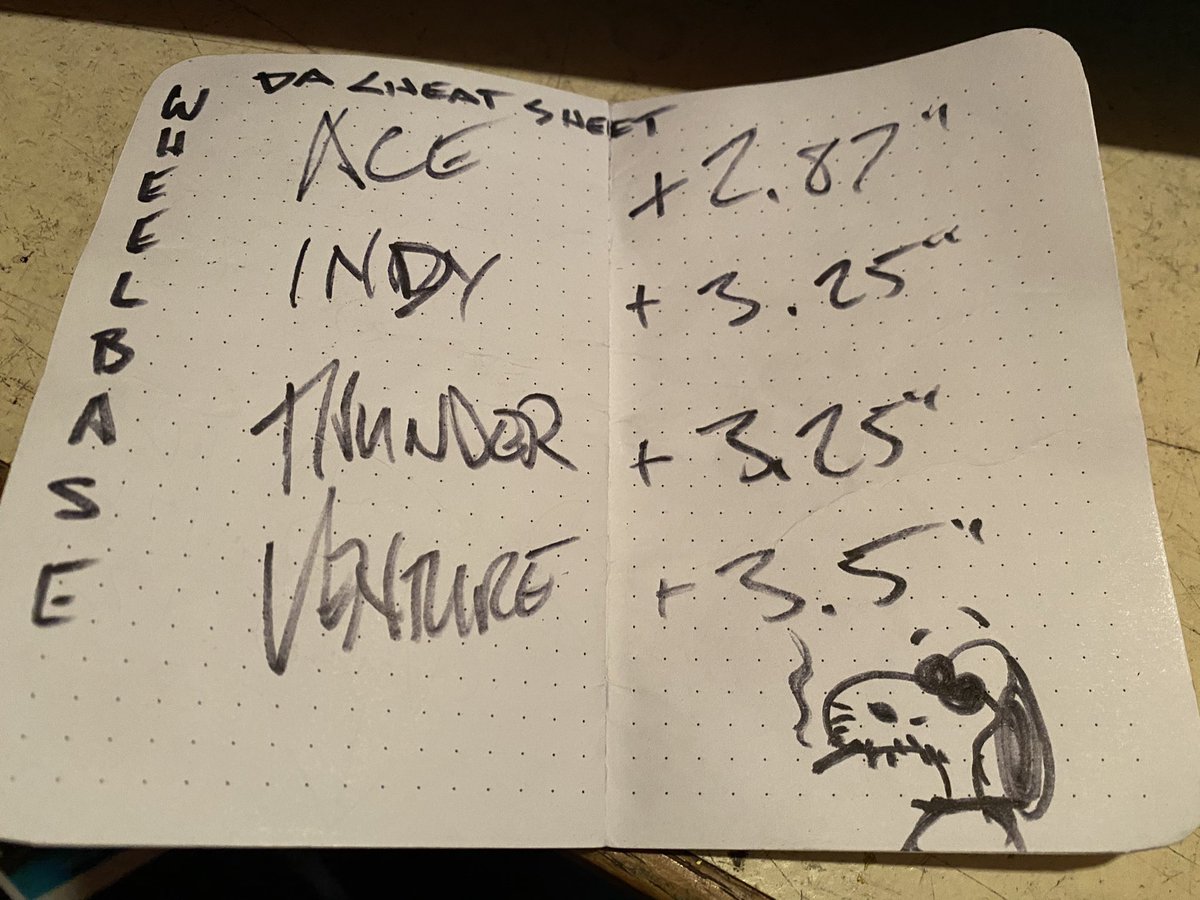 DA CHEAT SHEET
WHEELBASE
ACE +2.87"
INDY +3.25"
THUNDER +3.25"
VENTURE +3.5"